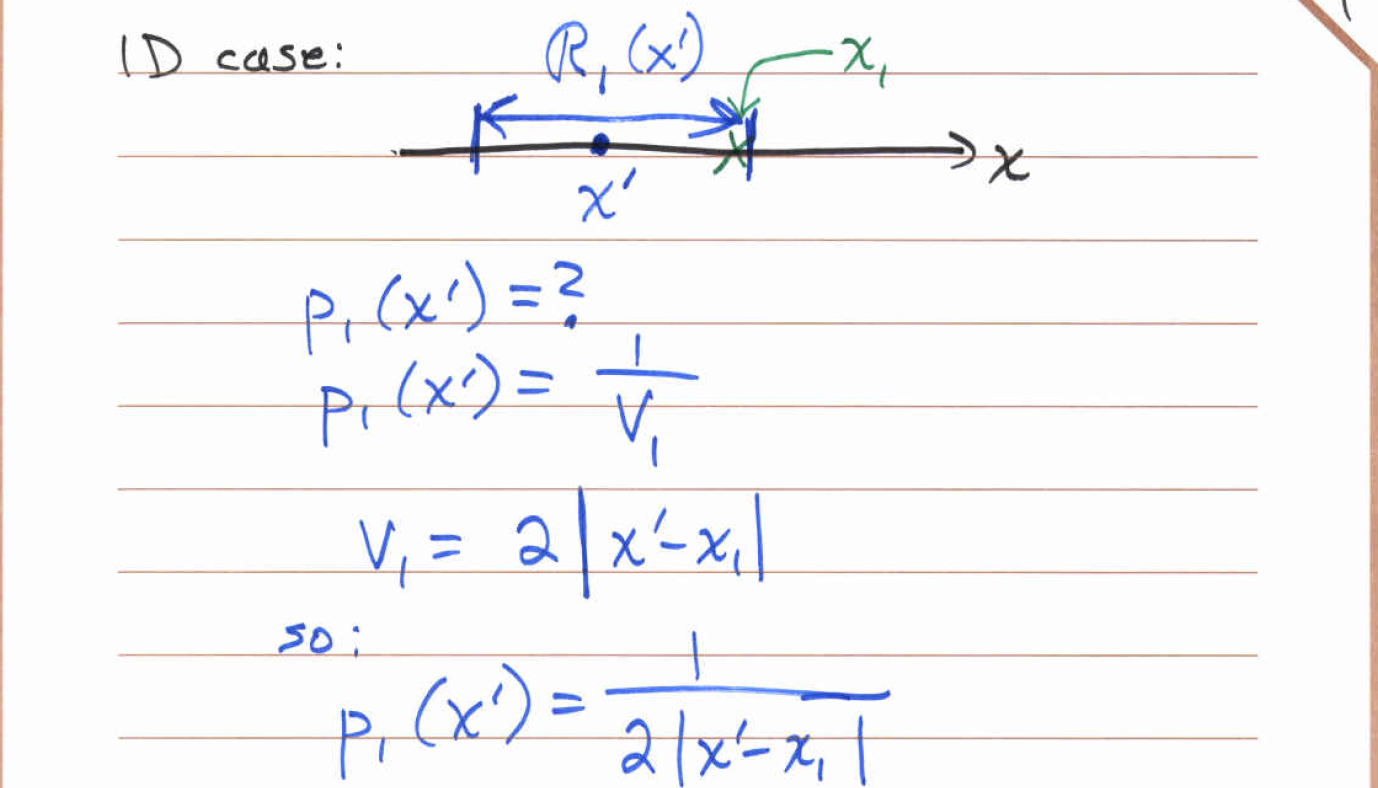 1D case:
R₁(x')
x₁
x
x'
p₁(x') = ?
p₁(x') = 1/V₁
V₁ = 2|x'-x₁|
so:
p₁(x') = 1/(2|x'-x₁|)